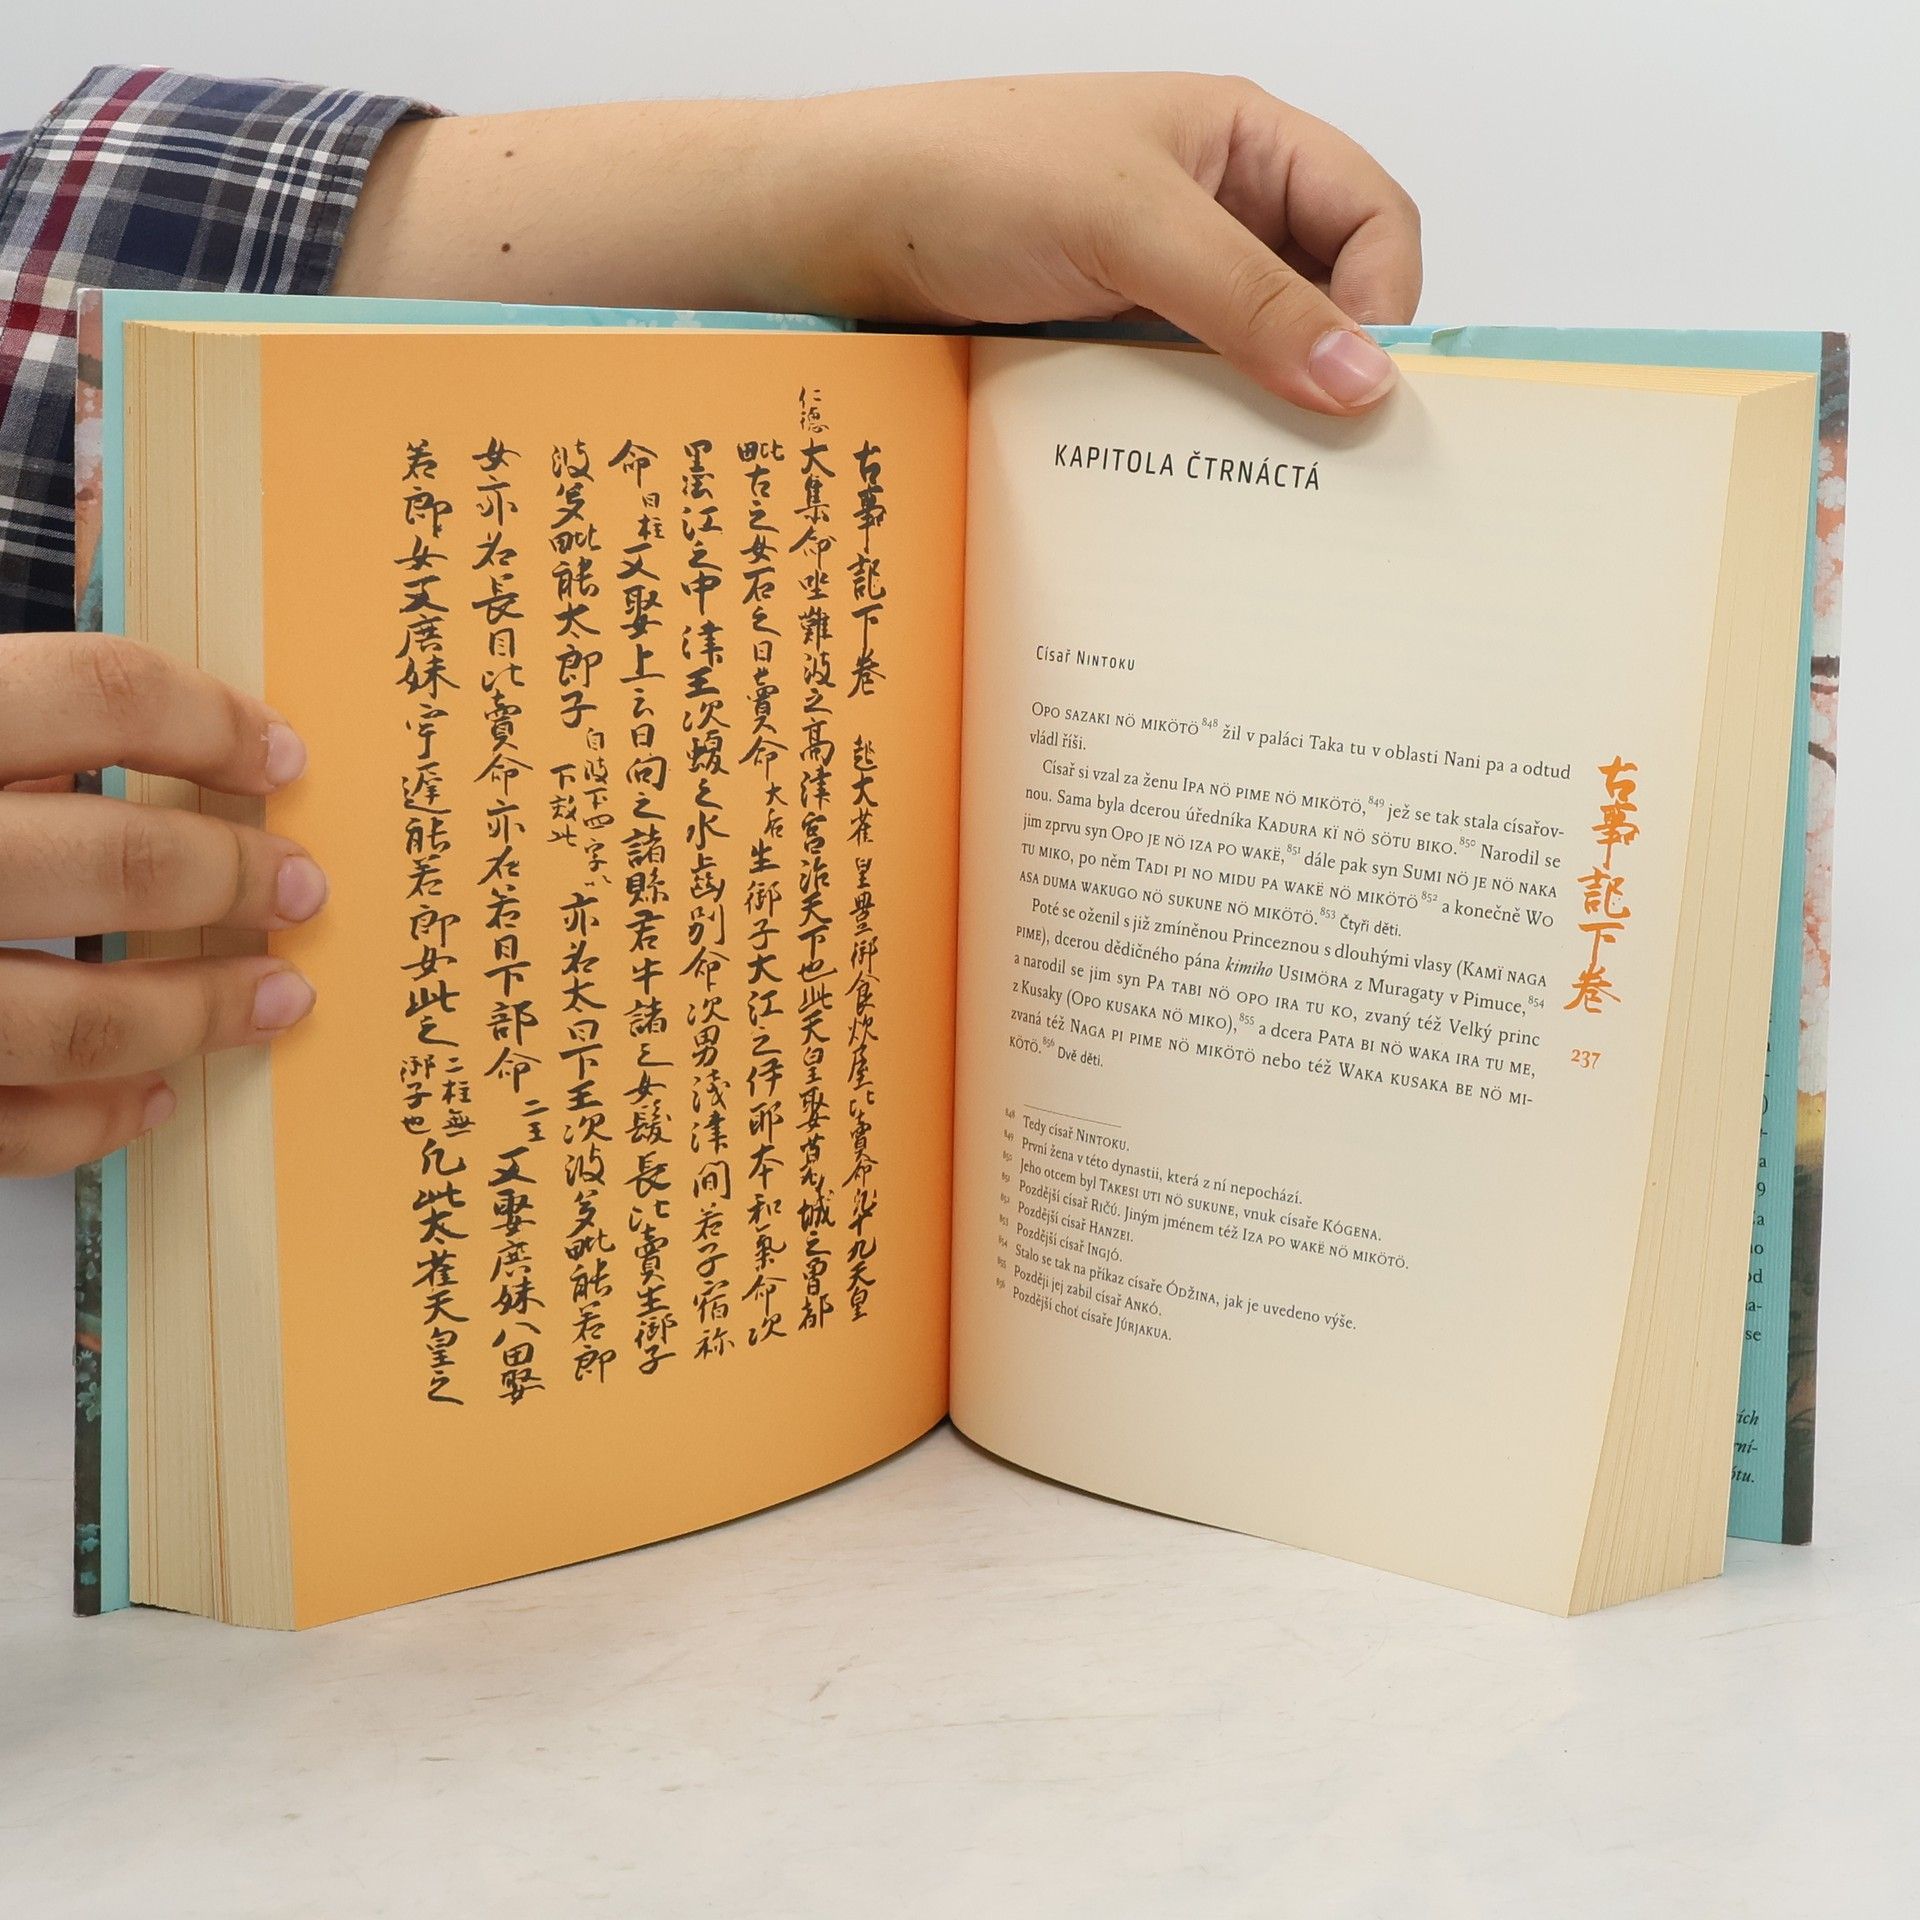 古事記下巻　起大雀皇豊御食炊屋比賣命凡十九天皇
仁徳
大集命坐難波之高津宮治天下也此天皇娶葛城之曽都
毗古之女石之日賣命大后生御子大江之伊耶本和氣命次
墨江之中津王次蝮之水歯別命次男浅津間若子宿祢
命四柱又娶上云日向之諸縣君牛諸之女髪長比賣生御子
波多毗能大郎子自波下四字以下效此亦名大日下王次波多毗能若郎
女亦名長目比賣命亦名若日下部命二王又娶庶妹八田娶
若郎女又庶妹宇遅能若郎女此之二柱無御子也凡此大雀天皇之
KAPITOLA ČTRNÁCTÁ
Císař NINTOKU
OPO SAZAKI NÖ MIKÖTÖ848 žil v paláci Taka tu v oblasti Nani pa a odtud
vládl říši.
Císař si vzal za ženu IPA NÖ PIME NÖ MIKÖTÖ,849 jež se tak stala císařov-
nou. Sama byla dcerou úředníka KADURA KÏ NÖ SÖTU BIKO.850 Narodil se
jim zprvu syn OPO JE NÖ IZA PO WAKË,851 dále pak syn SUMI NÖ JE NÖ NAKA
TU MIKO, po něm TADI PI NO MIDU PA WAKË NÖ MIKÖTÖ852 a konečně WO
ASA DUMA WAKUGO NÖ SUKUNE NÖ MIKÖTÖ.853 Čtyři děti.
Poté se oženil s již zmíněnou Princeznou s dlouhými vlasy (KAMÏ NAGA
PIME), dcerou dědičného pána kimiho USIMÖRA z Muragaty v Pimuce,854
a narodil se jim syn PA TABI NÖ OPO IRA TU KO, zvaný též Velký princ
z Kusaky (OPO KUSAKA NÖ MIKO),855 a dcera PATA BI NÖ WAKA IRA TU ME,
zvaná též NAGA PI PIME NÖ MIKÖTÖ nebo též WAKA KUSAKA BE NÖ MI-
KÖTÖ.856 Dvě děti.
848 Tedy císař NINTOKU.
849 První žena v této dynastii, která z ní nepochází.
850 Jeho otcem byl TAKESI UTI NÖ SUKUNE, vnuk císaře KÓGENA.
851 Pozdější císař RIČÚ. Jiným jménem též IZA PO WAKË NÖ MIKÖTÖ.
852 Pozdější císař HANZEI.
853 Pozdější císař INGJÓ.
854 Stalo se tak na příkaz císaře ÓDŽINA, jak je uvedeno výše.
855 Později jej zabil císař ANKÓ.
856 Pozdější choť císaře JÚRJAKUA.
古事記下巻
237